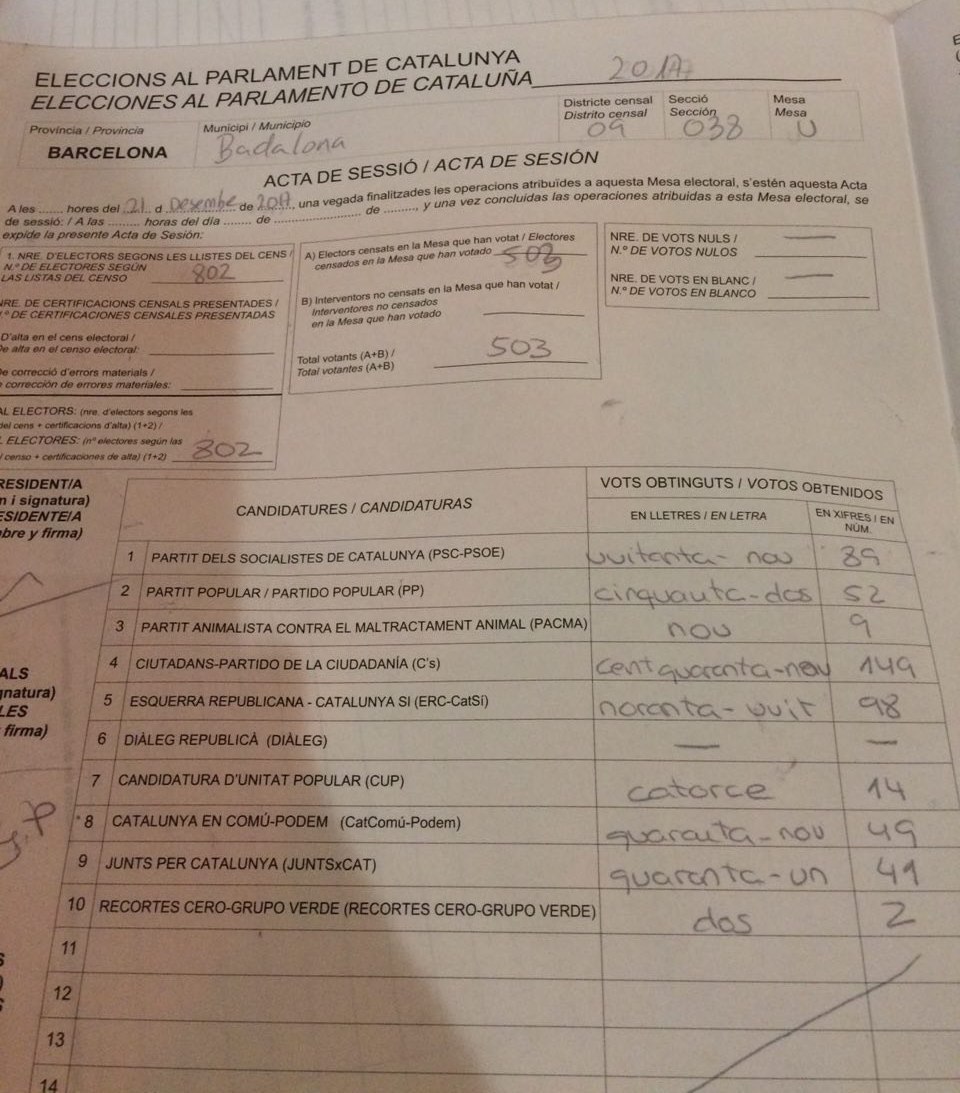 ELECCIONS AL PARLAMENT DE CATALUNYA
ELECCIONES AL PARLAMENTO DE CATALUÑA 2017
Província / Provincia
BARCELONA
Municipi / Municipio
Badalona
Districte censal
Distrito censal
09
Secció
Sección
038
Mesa
Mesa
U
ACTA DE SESSIÓ / ACTA DE SESIÓN
A les ...... hores del 21 d Desembre de 2017, una vegada finalitzades les operacions atribuïdes a aquesta Mesa electoral, s'estén aquesta Acta
de sessió: / A las ......... horas del día ....... de ....................... de ........., y una vez concluidas las operaciones atribuidas a esta Mesa electoral, se
expide la presente Acta de Sesión:
1. NRE. D'ELECTORS SEGONS LES LLISTES DEL CENS /
N.º DE ELECTORES SEGÚN
LAS LISTAS DEL CENSO 802
NRE. DE CERTIFICACIONS CENSALS PRESENTADES /
N.º DE CERTIFICACIONES CENSALES PRESENTADAS
D'alta en el cens electoral /
De alta en el censo electoral:
De correcció d'errors materials /
e corrección de errores materiales:
AL ELECTORS: (nre. d'electors segons les
del cens + certificacions d'alta) (1+2) /
L ELECTORES: (nº electores según las
censo + certificaciones de alta) (1+2) 802
A) Electors censats en la Mesa que han votat / Electores
censados en la Mesa que han votado 503
B) Interventors no censats en la Mesa que han votat /
Interventores no censados
en la Mesa que han votado
Total votants (A+B) /
Total votantes (A+B) 503
NRE. DE VOTS NULS / —
N.º DE VOTOS NULOS
NRE. DE VOTS EN BLANC / —
N.º DE VOTOS EN BLANCO
RESIDENT/A
m i signatura)
ESIDENTE/A
bre y firma)
ALS
gnatura)
LES
firma)
CANDIDATURES / CANDIDATURAS
VOTS OBTINGUTS / VOTOS OBTENIDOS
EN LLETRES / EN LETRA
EN XIFRES / EN
NÚM.
1 PARTIT DELS SOCIALISTES DE CATALUNYA (PSC-PSOE) vuitanta-nou 89
2 PARTIT POPULAR / PARTIDO POPULAR (PP) cinquanta-dos 52
3 PARTIT ANIMALISTA CONTRA EL MALTRACTAMENT ANIMAL (PACMA) nou 9
4 CIUTADANS-PARTIDO DE LA CIUDADANÍA (C's) cent quaranta-nou 149
5 ESQUERRA REPUBLICANA - CATALUNYA SI (ERC-CatSí) noranta-vuit 98
6 DIÀLEG REPUBLICÀ (DIÀLEG) — —
7 CANDIDATURA D'UNITAT POPULAR (CUP) catorce 14
8 CATALUNYA EN COMÚ-PODEM (CatComú-Podem) quaranta-nou 49
9 JUNTS PER CATALUNYA (JUNTSxCAT) quaranta-un 41
10 RECORTES CERO-GRUPO VERDE (RECORTES CERO-GRUPO VERDE) dos 2
11
12
13
14